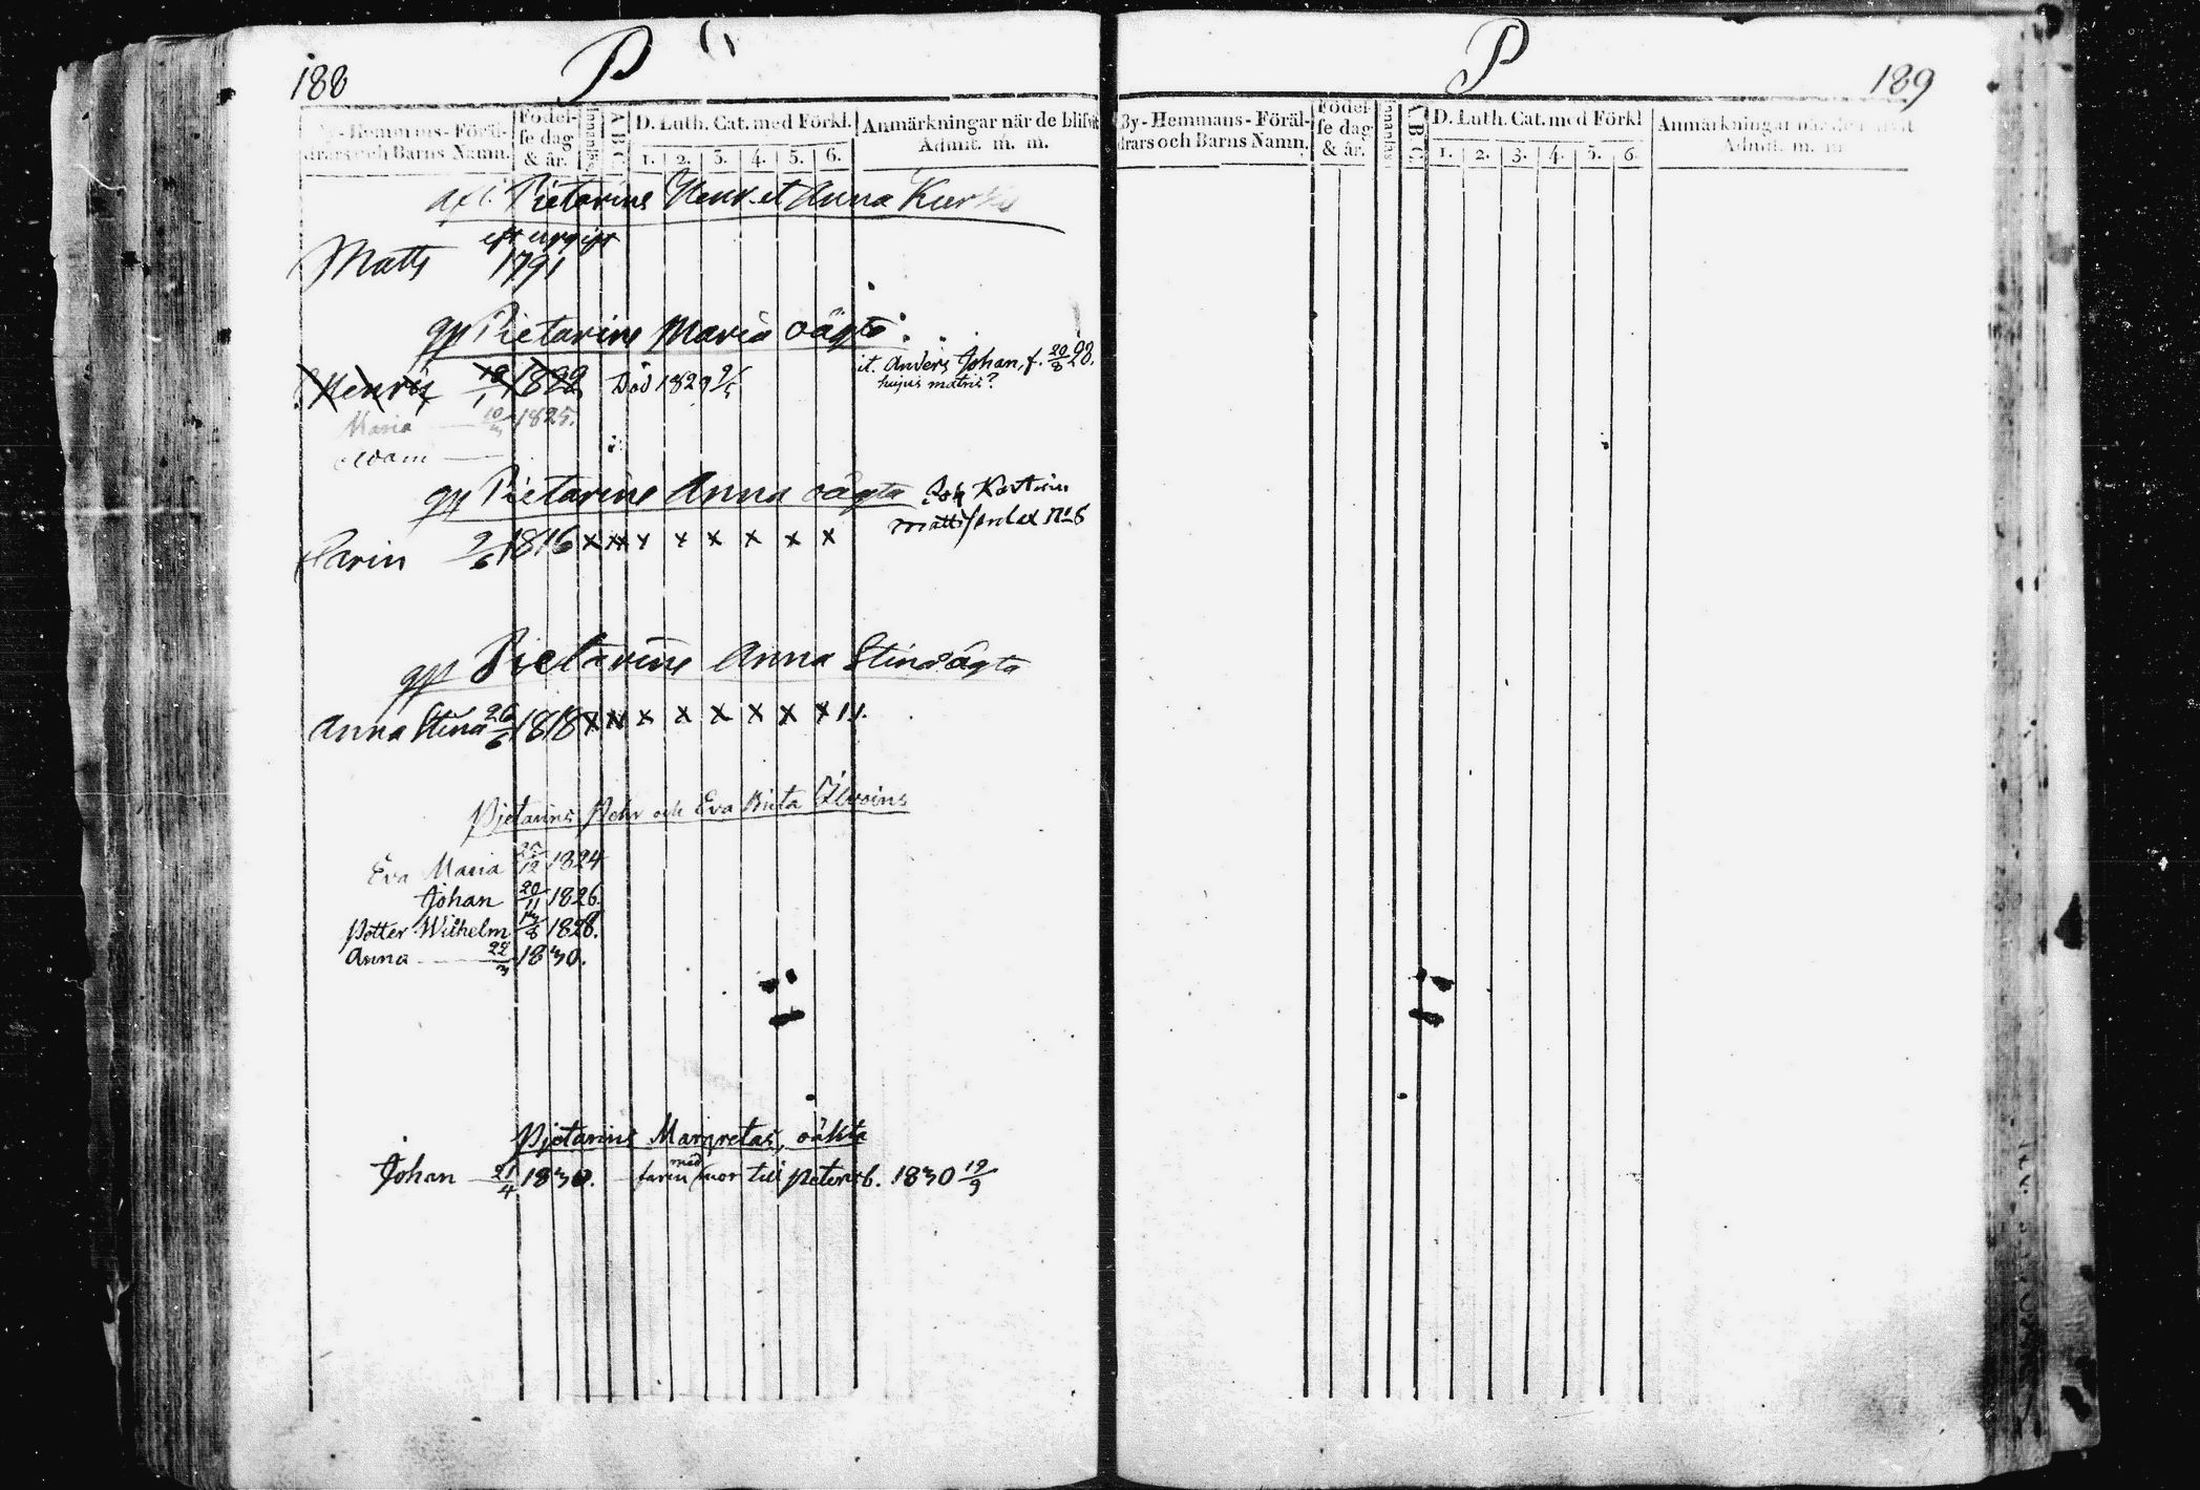 188
P
By-Hemmans-Föräl-
drars och Barns Namn.
Födel-
se dag
& år.
Innanläs
A B C
D. Luth. Cat. med Förkl.
1. 2. 3. 4. 5. 6.
Anmärkningar när de blifvit
Admit. m. m.
Pietarins Henr. et Anna
Matts 1791
Pietarins Maria oägta
it. Anders Johan, f. 20/8 28.
hujus matris?
Henric 19/1 1829 Död 1829
Maria 1825.
Adam
Pietarins Anna oägta
N:o 8
Carin 1816 x x x x x x x x
Pietarins Anna Stinas oägta
Anna Stina 26/6 1818 x x x x x x x x
Pjetarins Pehr och Eva
Eva Maria 1824
Johan 20/11 1826.
Petter Wilhelm 1828.
Anna 1830.
Pjetarins Margretas, oäkta
Johan 21/4 1830. faren med mor till Petersb. 1830 19/9
P
189
By-Hemmans-Föräl-
drars och Barns Namn.
Födel-
se dag
& år.
Innanläs
A B C
D. Luth. Cat. med Förkl
1. 2. 3. 4. 5. 6.
Anmärkningar när de blifvit
Admit. m. m